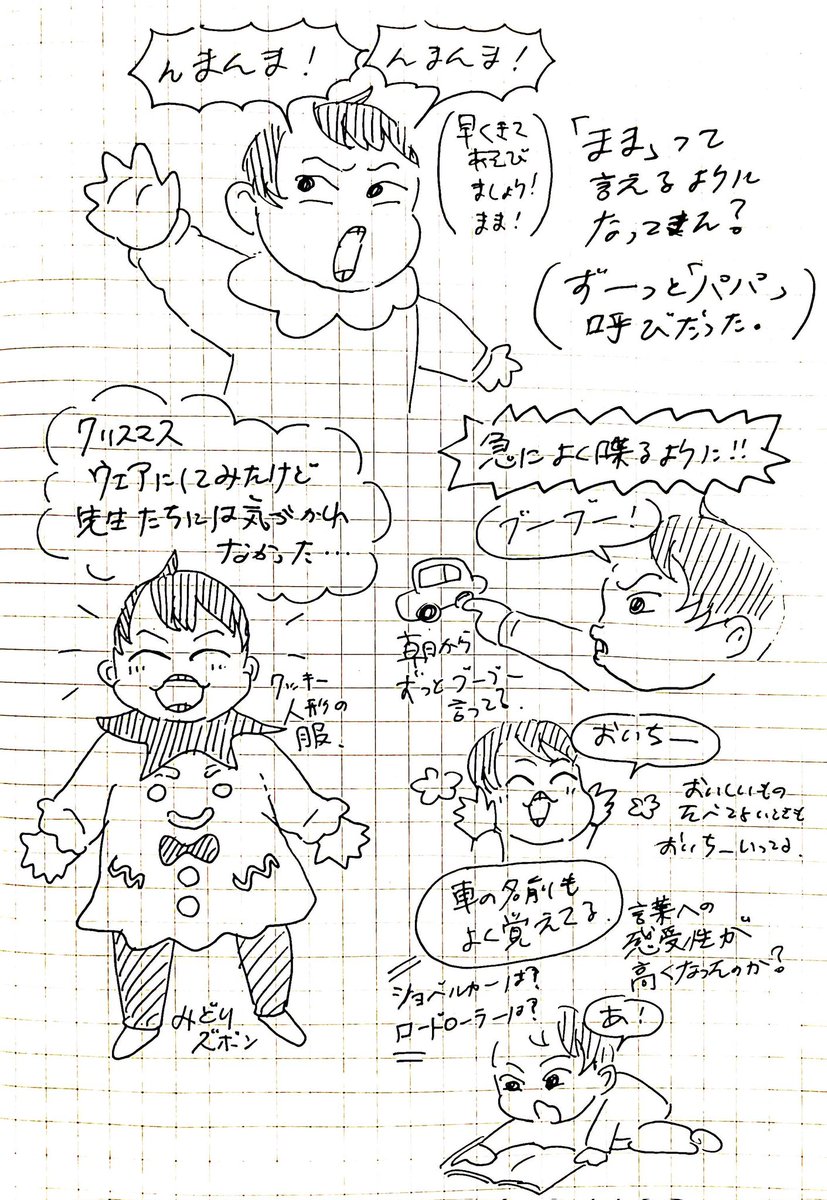 んまんま！
んまんま！
早くきて
あそび
ましょう！
まま！
「まま」って
言えるように
なってきた？
ずーっと「パパ」
呼びだった。
クリスマス
ウェアにしてみたけど
先生たちには気づかれ
なかった…
急によく喋るように!!
ブーブー！
朝から
ずっとブーブー
言ってる。
クッキー
人形の
服。
おいちー
おいしいもの
たべてないときも
おいちーいってる。
車の名前も
よく覚えてる。
言葉への
感受性が
高くなったのか？
ショベルカーは？
ロードローラーは？
あ！
みどり
ズボン